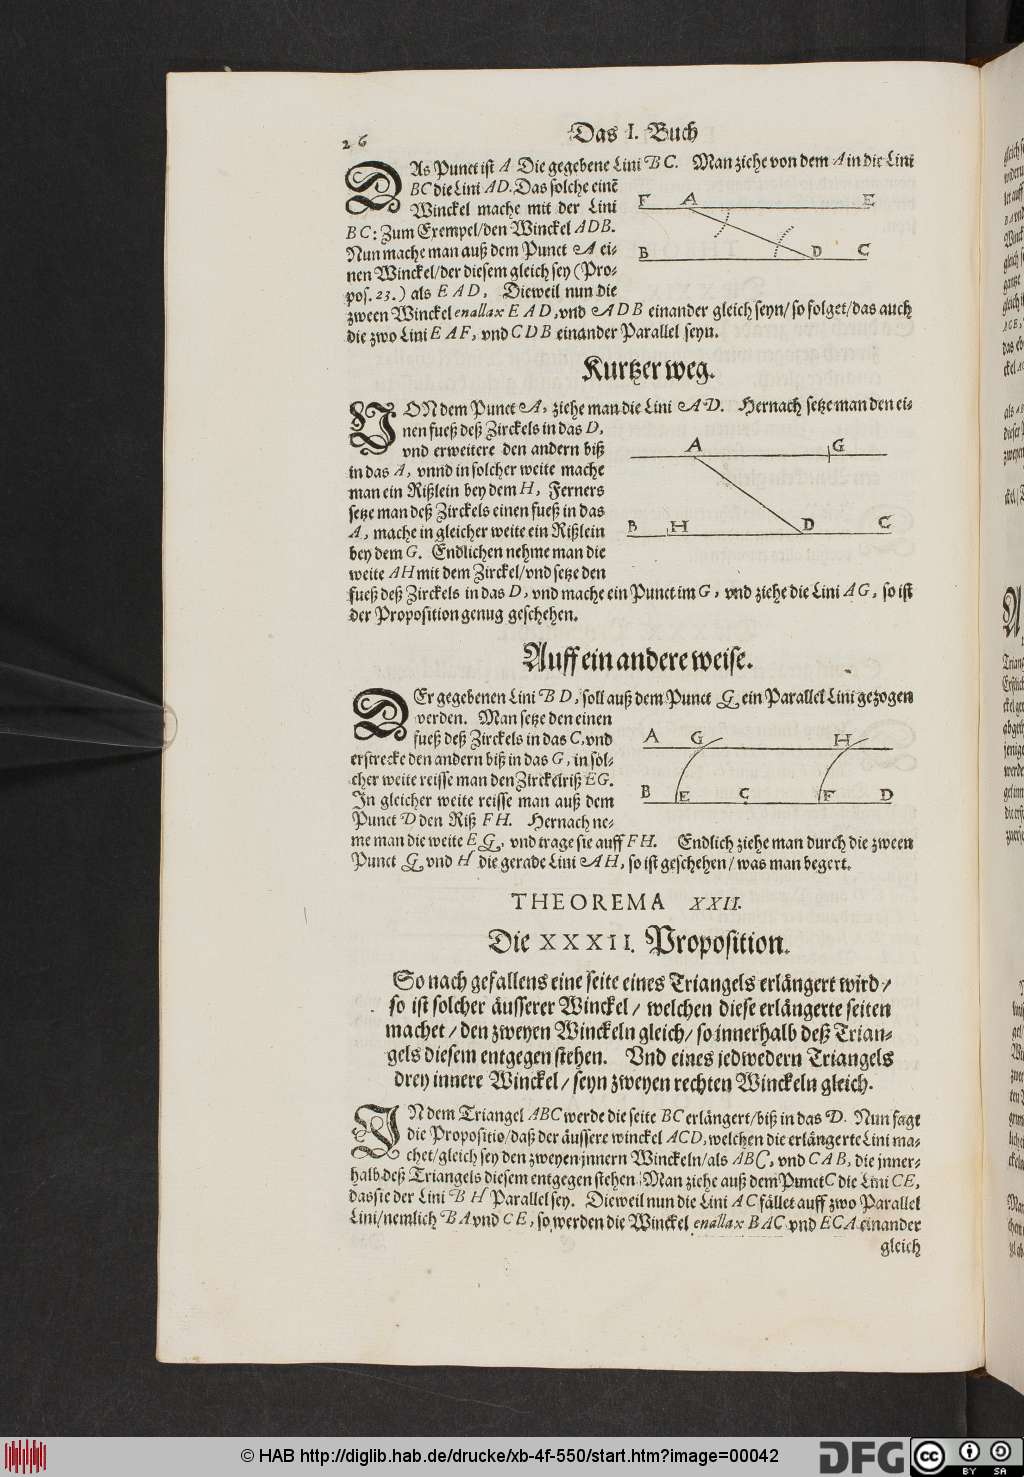 26 Das I. Buch
DAs Punct ist A Die gegebene Lini BC. Man ziehe von dem A in die Lini
BC die Lini AD. Das solche einẽ
Winckel mache mit der Lini
BC: Zum Exempel/ den Winckel ADB.
Nun mache man auß dem Punct A ei-
nen Winckel/ der diesem gleich sey (Pro-
pos. 23.) als EAD, Dieweil nun die
zween Winckel enallax EAD, vnd ADB einander gleich seyn/ so folget/ das auch
die zwo Lini EAF, vnd CDB einander Parallel seyn.
F A E
B D C
Kurtzer weg.
VON dem Punct A, ziehe man die Lini AD. Hernach setze man den ei-
nen fueß deß Zirckels in das D,
vnd erweitere den andern biß
in das A, vnnd in solcher weite mache
man ein Rißlein bey dem H, Ferners
setze man deß Zirckels einen fueß in das
A, mache in gleicher weite ein Rißlein
bey dem G. Endlichen nehme man die
weite AH mit dem Zirckel/ vnd setze den
fueß deß Zirckels in das D, vnd mache ein Punct im G, vnd ziehe die Lini AG, so ist
der Proposition genug geschehen.
A G
B H D C
Auff ein andere weise.
DEr gegebenen Lini BD, soll auß dem Punct G ein Parallel Lini gezogen
werden. Man setze den einen
fueß deß Zirckels in das C, vnd
erstrecke den andern biß in das G, in sol-
cher weite reisse man den Zirckelriß EG.
In gleicher weite reisse man auß dem
Punct D den Riß FH. Hernach ne-
me man die weite EG, vnd trage sie auff FH. Endlich ziehe man durch die zween
Punct G vnd H die gerade Lini AH, so ist geschehen/ was man begert.
A G H
B E C F D
THEOREMA XXII.
Die XXXII. Proposition.
So nach gefallens eine seite eines Triangels erlängert wird/
so ist solcher äusserer Winckel/ welchen diese erlängerte seiten
machet/ den zweyen Winckeln gleich/ so innerhalb deß Trian-
gels diesem entgegen stehen. Vnd eines jedwedern Triangels
drey innere Winckel/ seyn zweyen rechten Winckeln gleich.
IN dem Triangel ABC werde die seite BC erlängert/ biß in das D. Nun sagt
die Propositio/ daß der äussere winckel ACD, welchen die erlängerte Lini ma-
chet/ gleich sey den zweyen jnnern Winckeln/ als ABC, vnd CAB, die jnner-
halb deß Triangels diesem entgegen stehen. Man ziehe auß dem Punct C die Lini CE,
das sie der Lini BH Parallel sey. Dieweil nun die Lini AC fället auff zwo Parallel
Lini/ nemlich BA vnd CE, so werden die Winckel enallax BAC vnd ECA einander
gleich
© HAB http://diglib.hab.de/drucke/xb-4f-550/start.htm?image=00042
DFG
cc BY SA